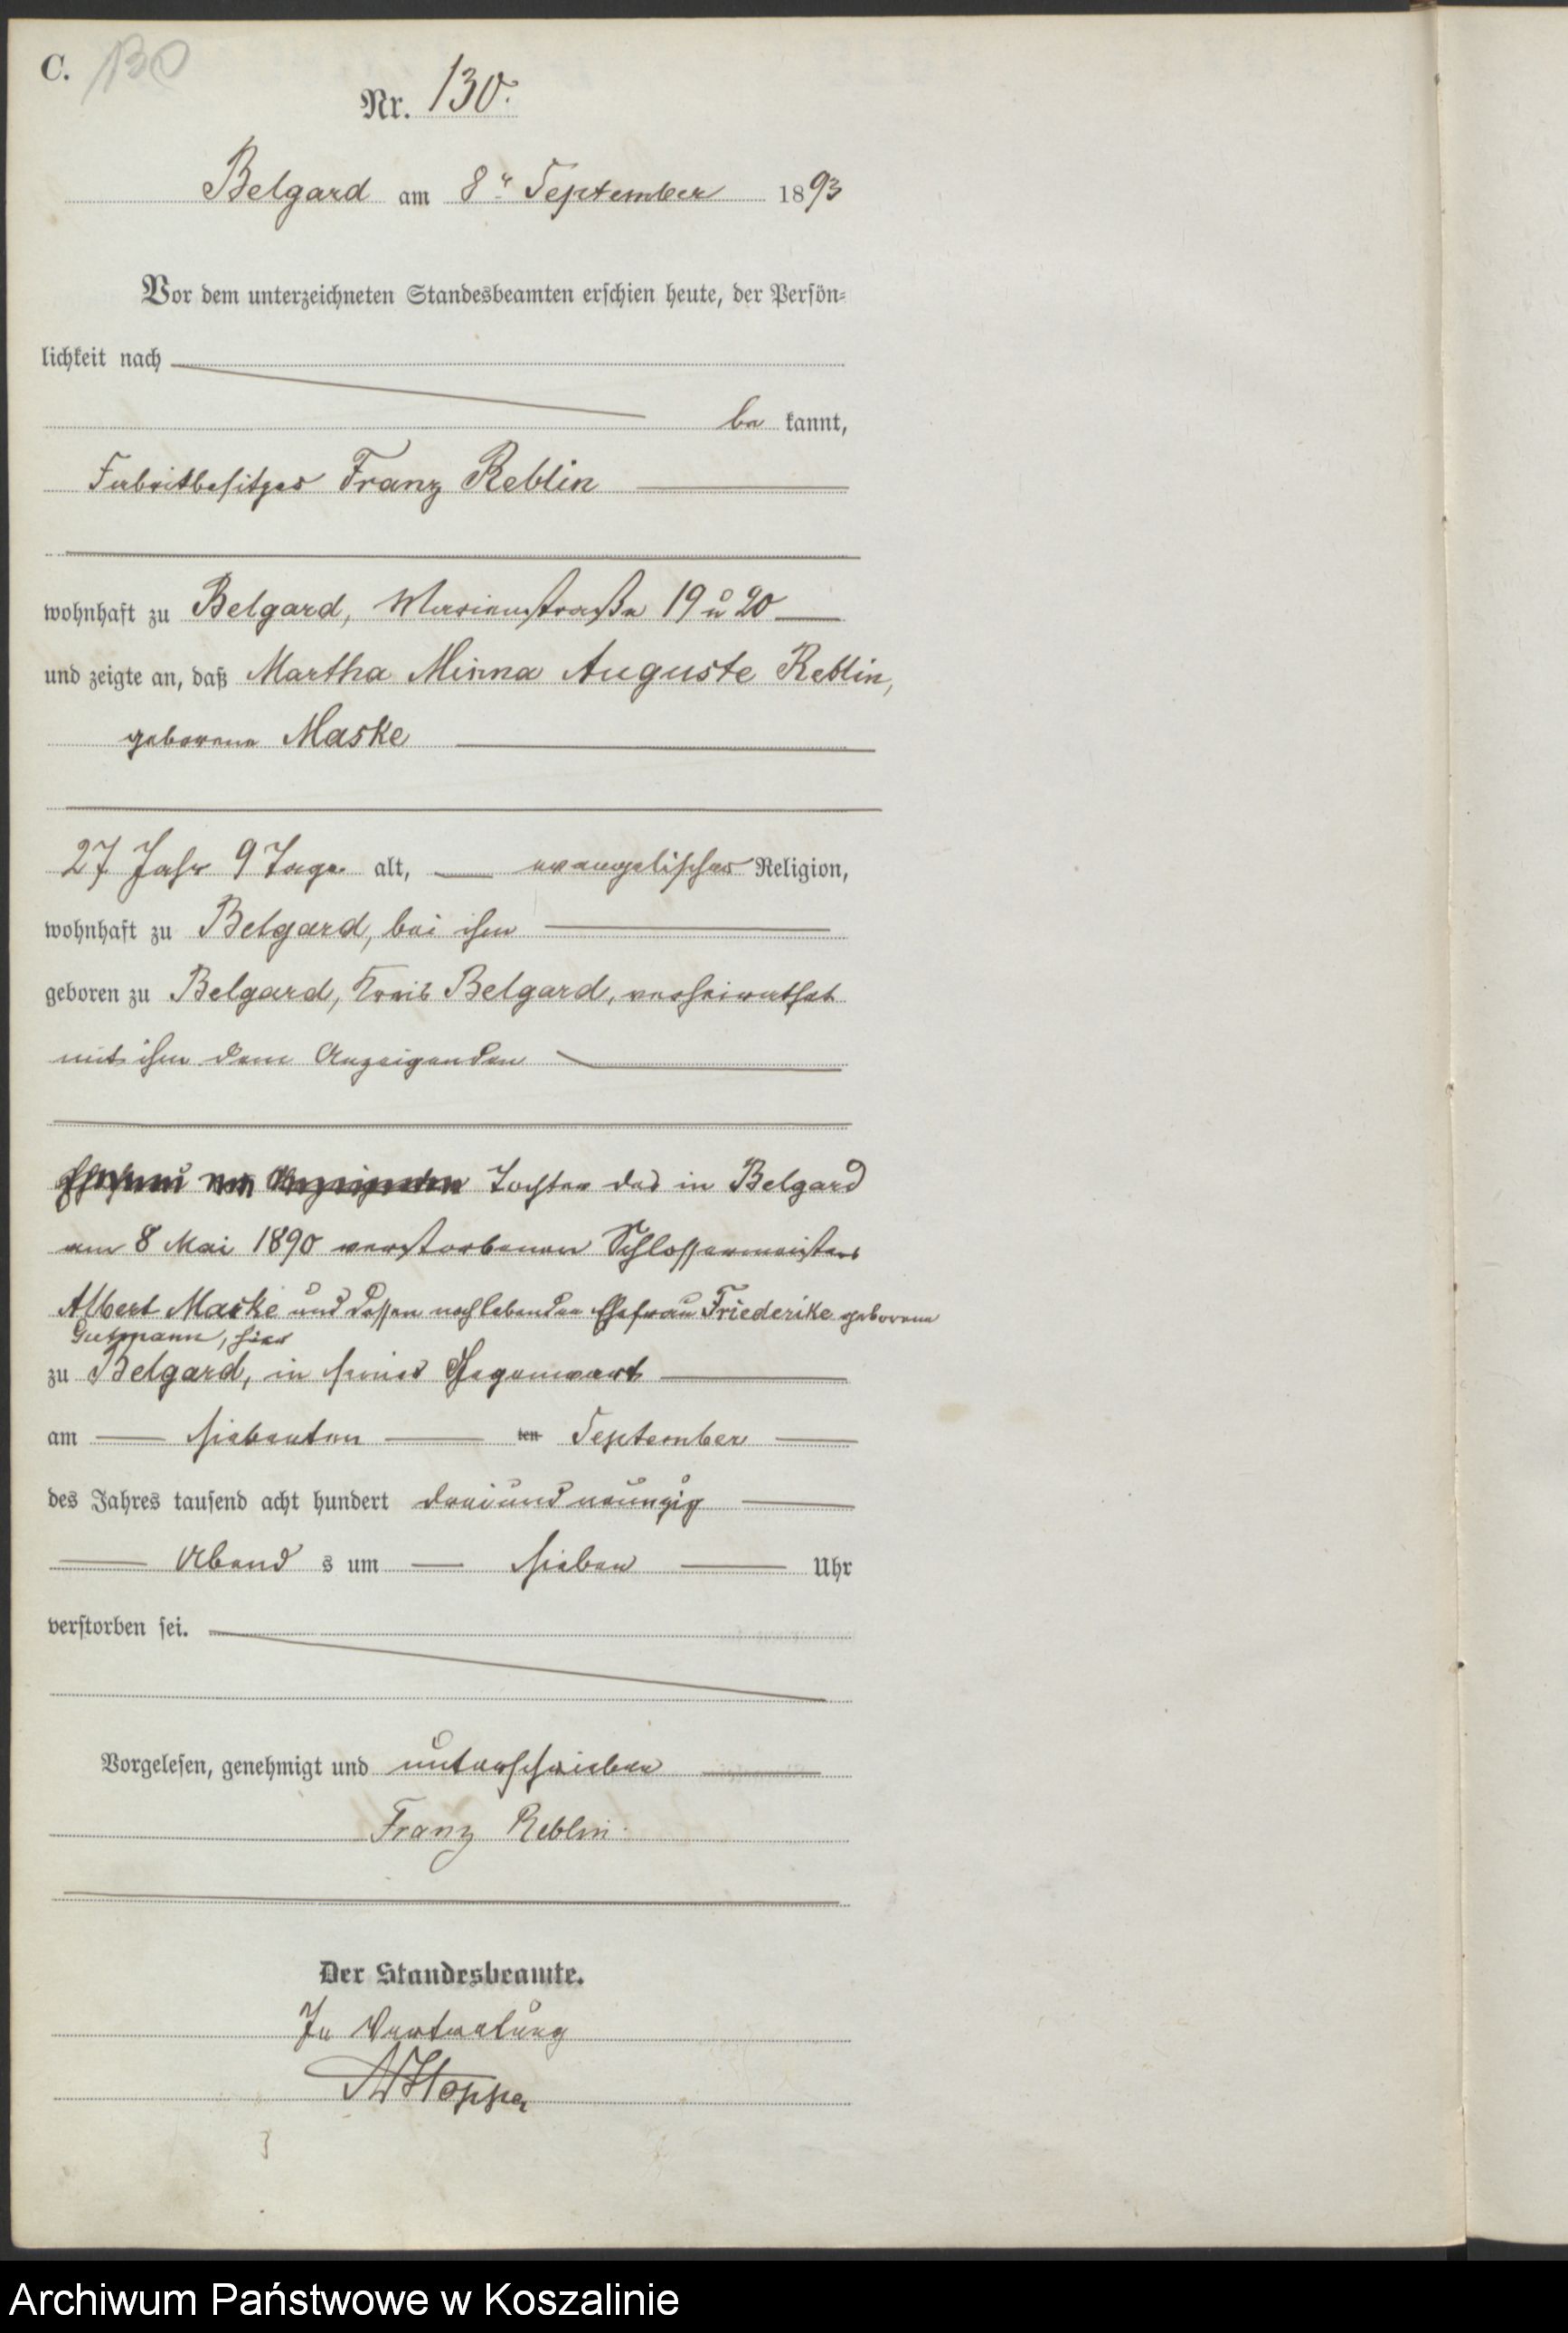 C. 130
Nr. 130.
Belgard am 8ten September 1893
Vor dem unterzeichneten Standesbeamten erschien heute, der Persön-
lichkeit nach
be kannt,
Fabrikbesitzer Franz Reblin
wohnhaft zu Belgard, Marienstraße 19 u 20
und zeigte an, daß Martha Minna Auguste Reblin,
geborene Maske
27 Jahr 9 Tage alt, evangelischer Religion,
wohnhaft zu Belgard, bei ihm
geboren zu Belgard, Kreis Belgard, verheirathet
mit ihm dem Anzeigenden
Tochter des in Belgard
am 8 Mai 1890 verstorbenen Schlossermeisters
Albert Maske und dessen noch lebenden Ehefrau Friederike geborene
Gutzmann, hier
zu Belgard, in seiner Gegenwart
am siebenten ten September
des Jahres tausend acht hundert dreiundneunzig
Abend s um sieben Uhr
verstorben sei.
Vorgelesen, genehmigt und unterschrieben
Franz Reblin.
Der Standesbeamte.
In Vertretung
Hoppe
Archiwum Państwowe w Koszalinie